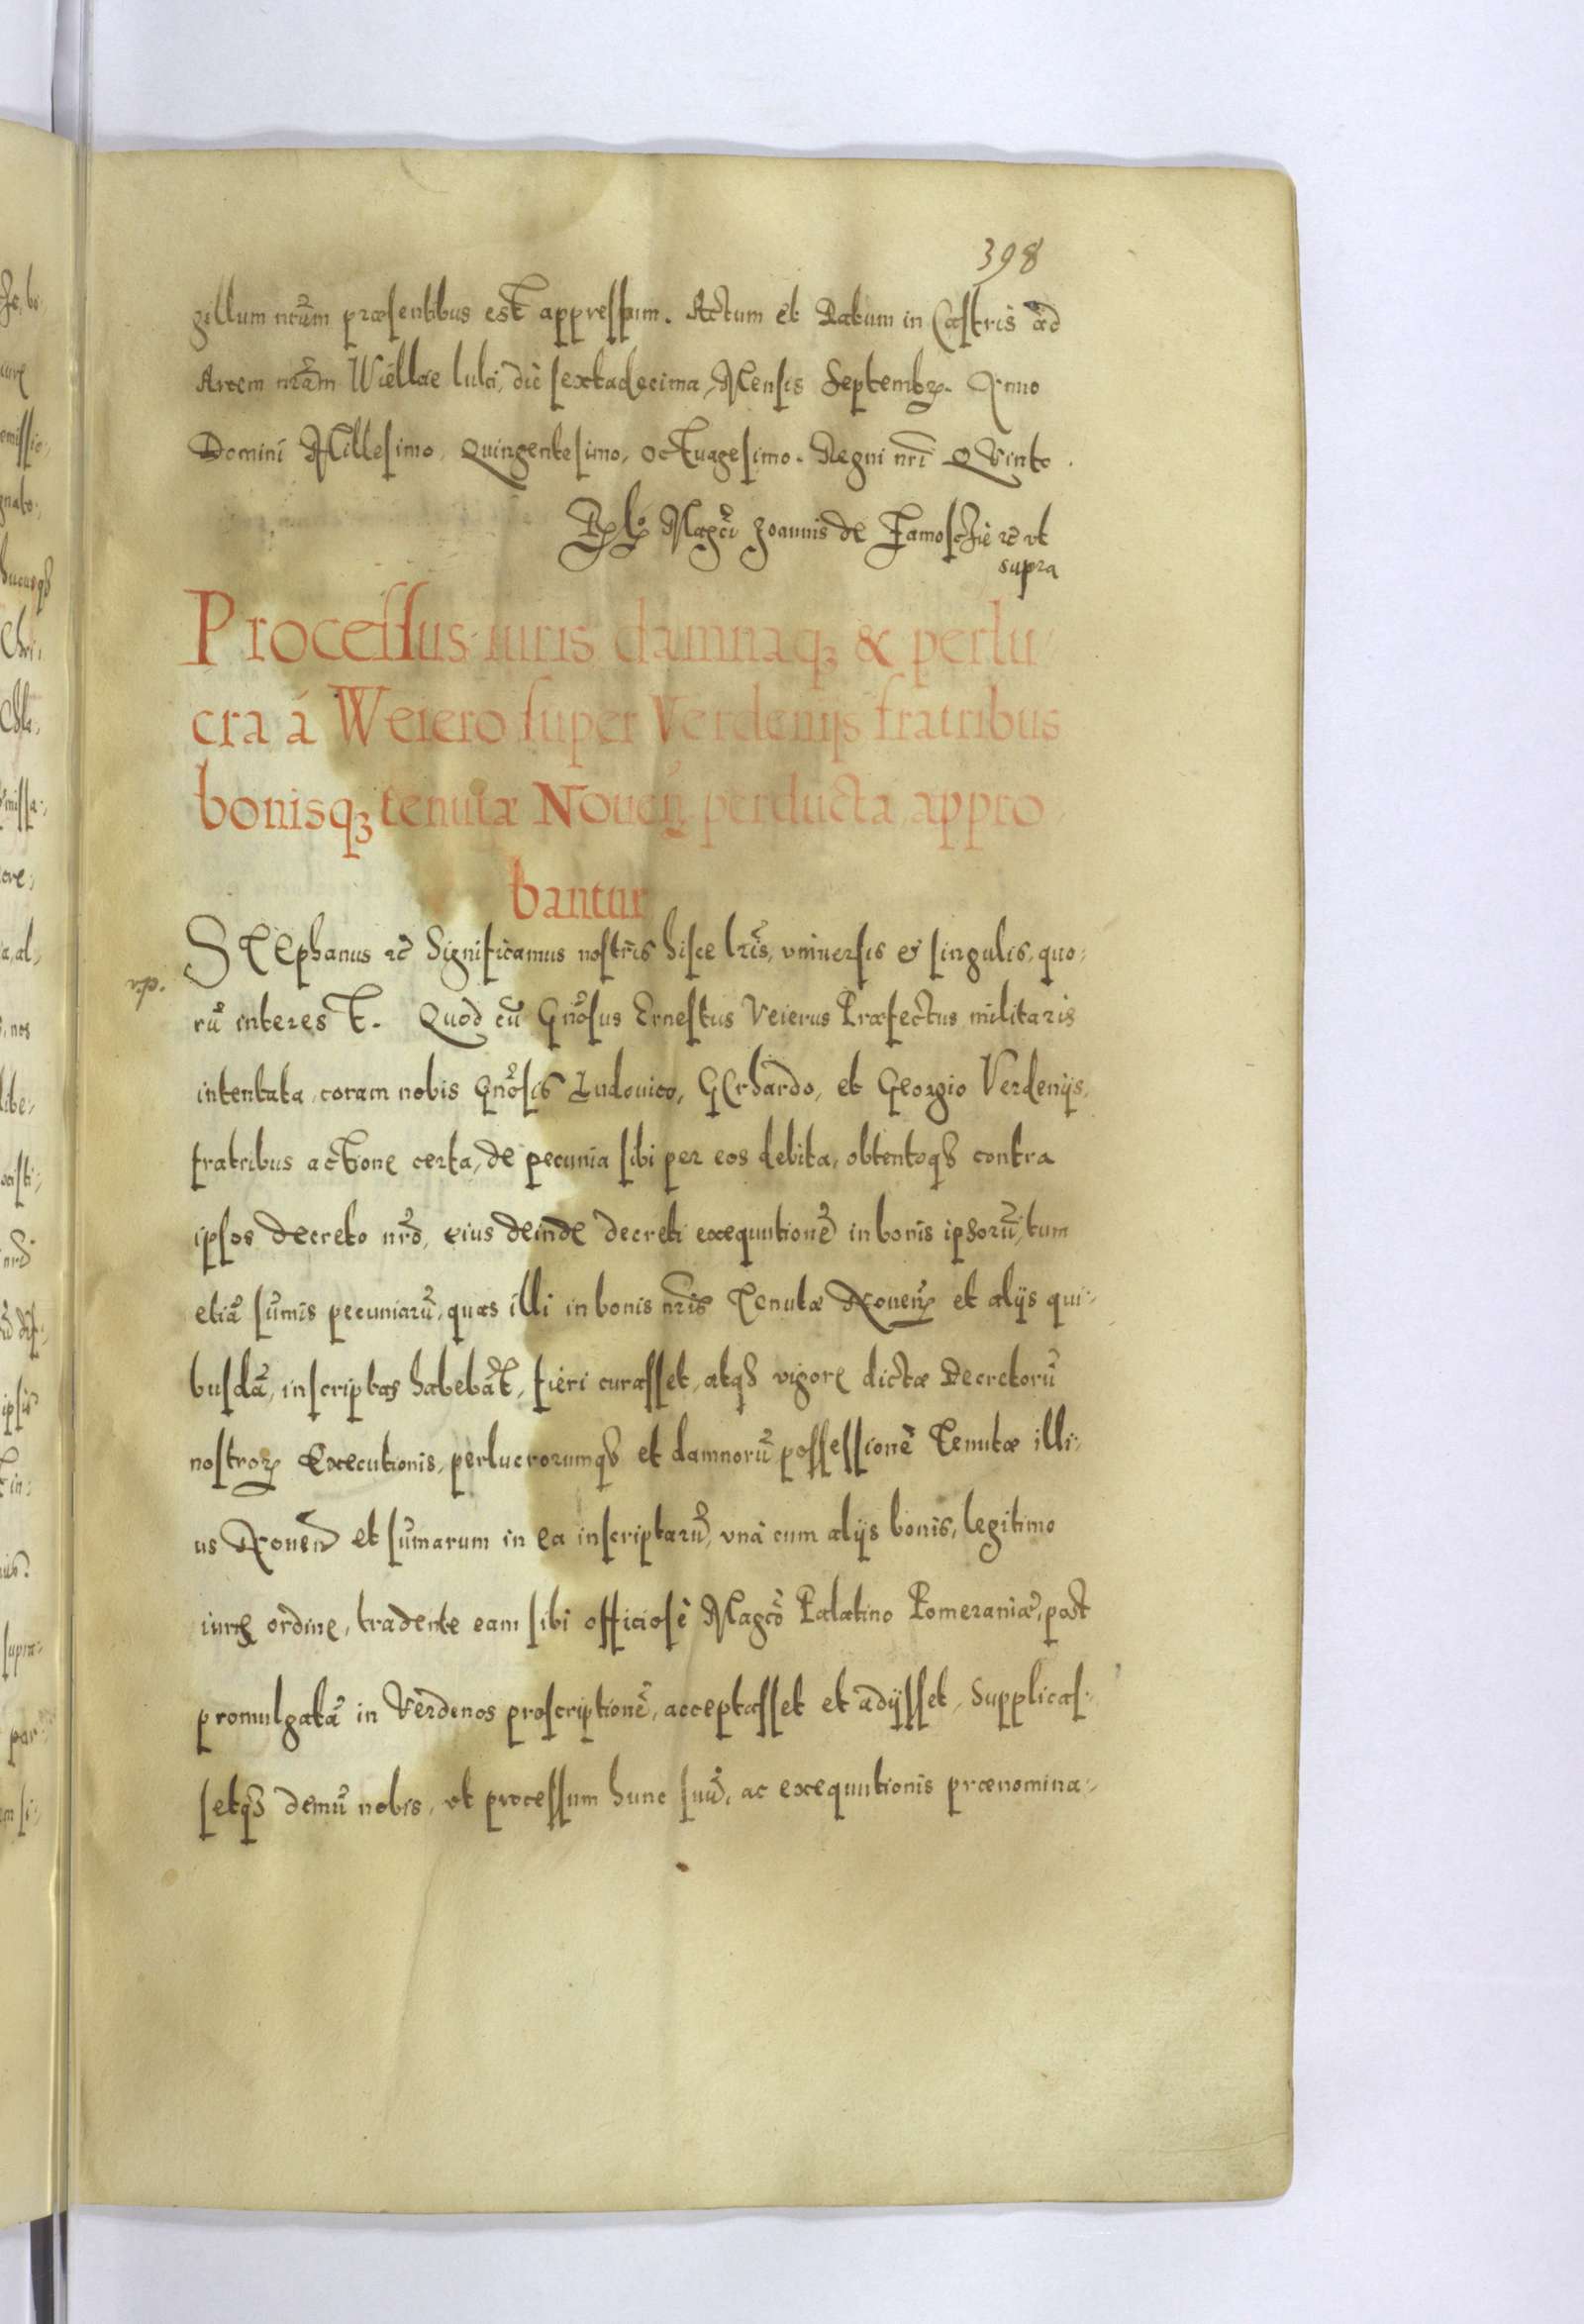 398
gillum nrũm præsentibus est appressum. Actum et Datum in Castris ad
Arcem nrãm Wiellœ luki, die sextadecima, Mensis Septembr. Anno
Domini Millesimo, Quingentesimo, octuagesimo. Regni nrĩ Quinto.
Magcĩ Joannis de Zamoschie rc̃ vt
supra
Processus iuris damnaq; & perlu
cra á Weiero super Verdenijs fratribus
bonisq; tenutæ Noueñ perducta appro
bantur
Stephanus rc̃ Significamus nostris hisce lrĩs, vniuersis et singulis, quo:
rũ interest. Quod cũ Gnõsus Ernestus Veierus Præfectus militaris
intentata, coram nobis Gnõsis Ludouico, GErhardo, et Georgio Verdenijs,
fratribus actione certa, de pecunia sibi per eos debita, obtentoq; contra
ipsos decreto nrõ, eius deinde decreti exequutionẽ in bonis ipsorũ, tum
etiã sũmis pecuniarũ, quas illi in bonis nrĩs Tenutæ Noueñ et alijs qui:
busdã, inscriptas habebãt, fieri curasset, atq; vigore dictæ Decretorũ
nostror Executionis, perlucrorumq; et damnorũ possessionẽ Tenutæ illi:
us Noueñ et sũmarum in ea inscriptarũ, vnà cum alijs bonis, legitimo
iuris ordine, tradente eam sibi officiosè Magcõ Palatino Pomeraniæ, post
promulgatã in Verdenos proscriptionẽ, acceptasset et adijsset, Supplicas:
setq; demũ nobis, vt processum hunc suũ, ac exequutionis prænomina: